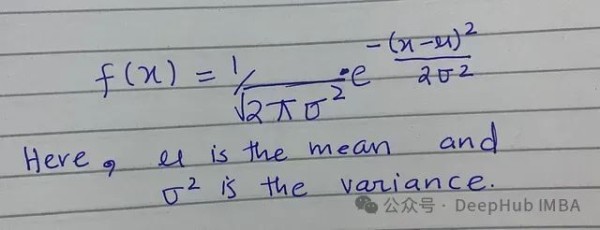 f(x) = 1/√2πσ² · e^-(x-μ)²/2σ²
Here, μ is the mean and
σ² is the variance.
公众号 · DeepHub IMBA